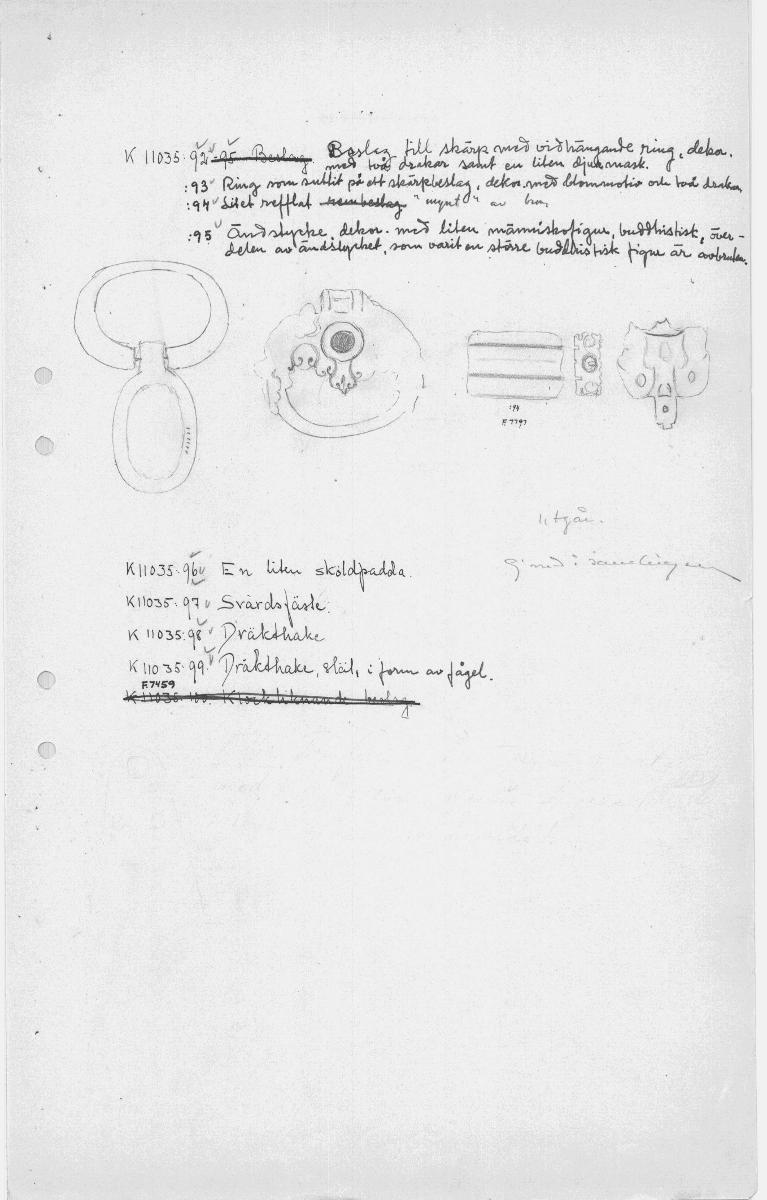 K 11035:92 -95 Beslag Beslag till skärp med vidhängande ring, dekor.
med två drakar samt en liten djurmask.
:93 Ring som suttit på ett skärpbeslag, dekor. med blommotiv och två drakar.
:94 Litet refflat "mynt" av
:95 Ändstycke, dekor. med liten människofigur, buddhistisk, över-
delen av ändstycket, som varit en större buddhistisk figur är avbruten.
:94
F.7797
Utgår.
K11035:96 En liten sköldpadda.
K11035:97 Svärdsfäste.
K 11035:98 Dräkthake
K 11035:99. Dräkthake, stål, i form av fågel.
F.7459
K 11035:100. Klockliknande beslag